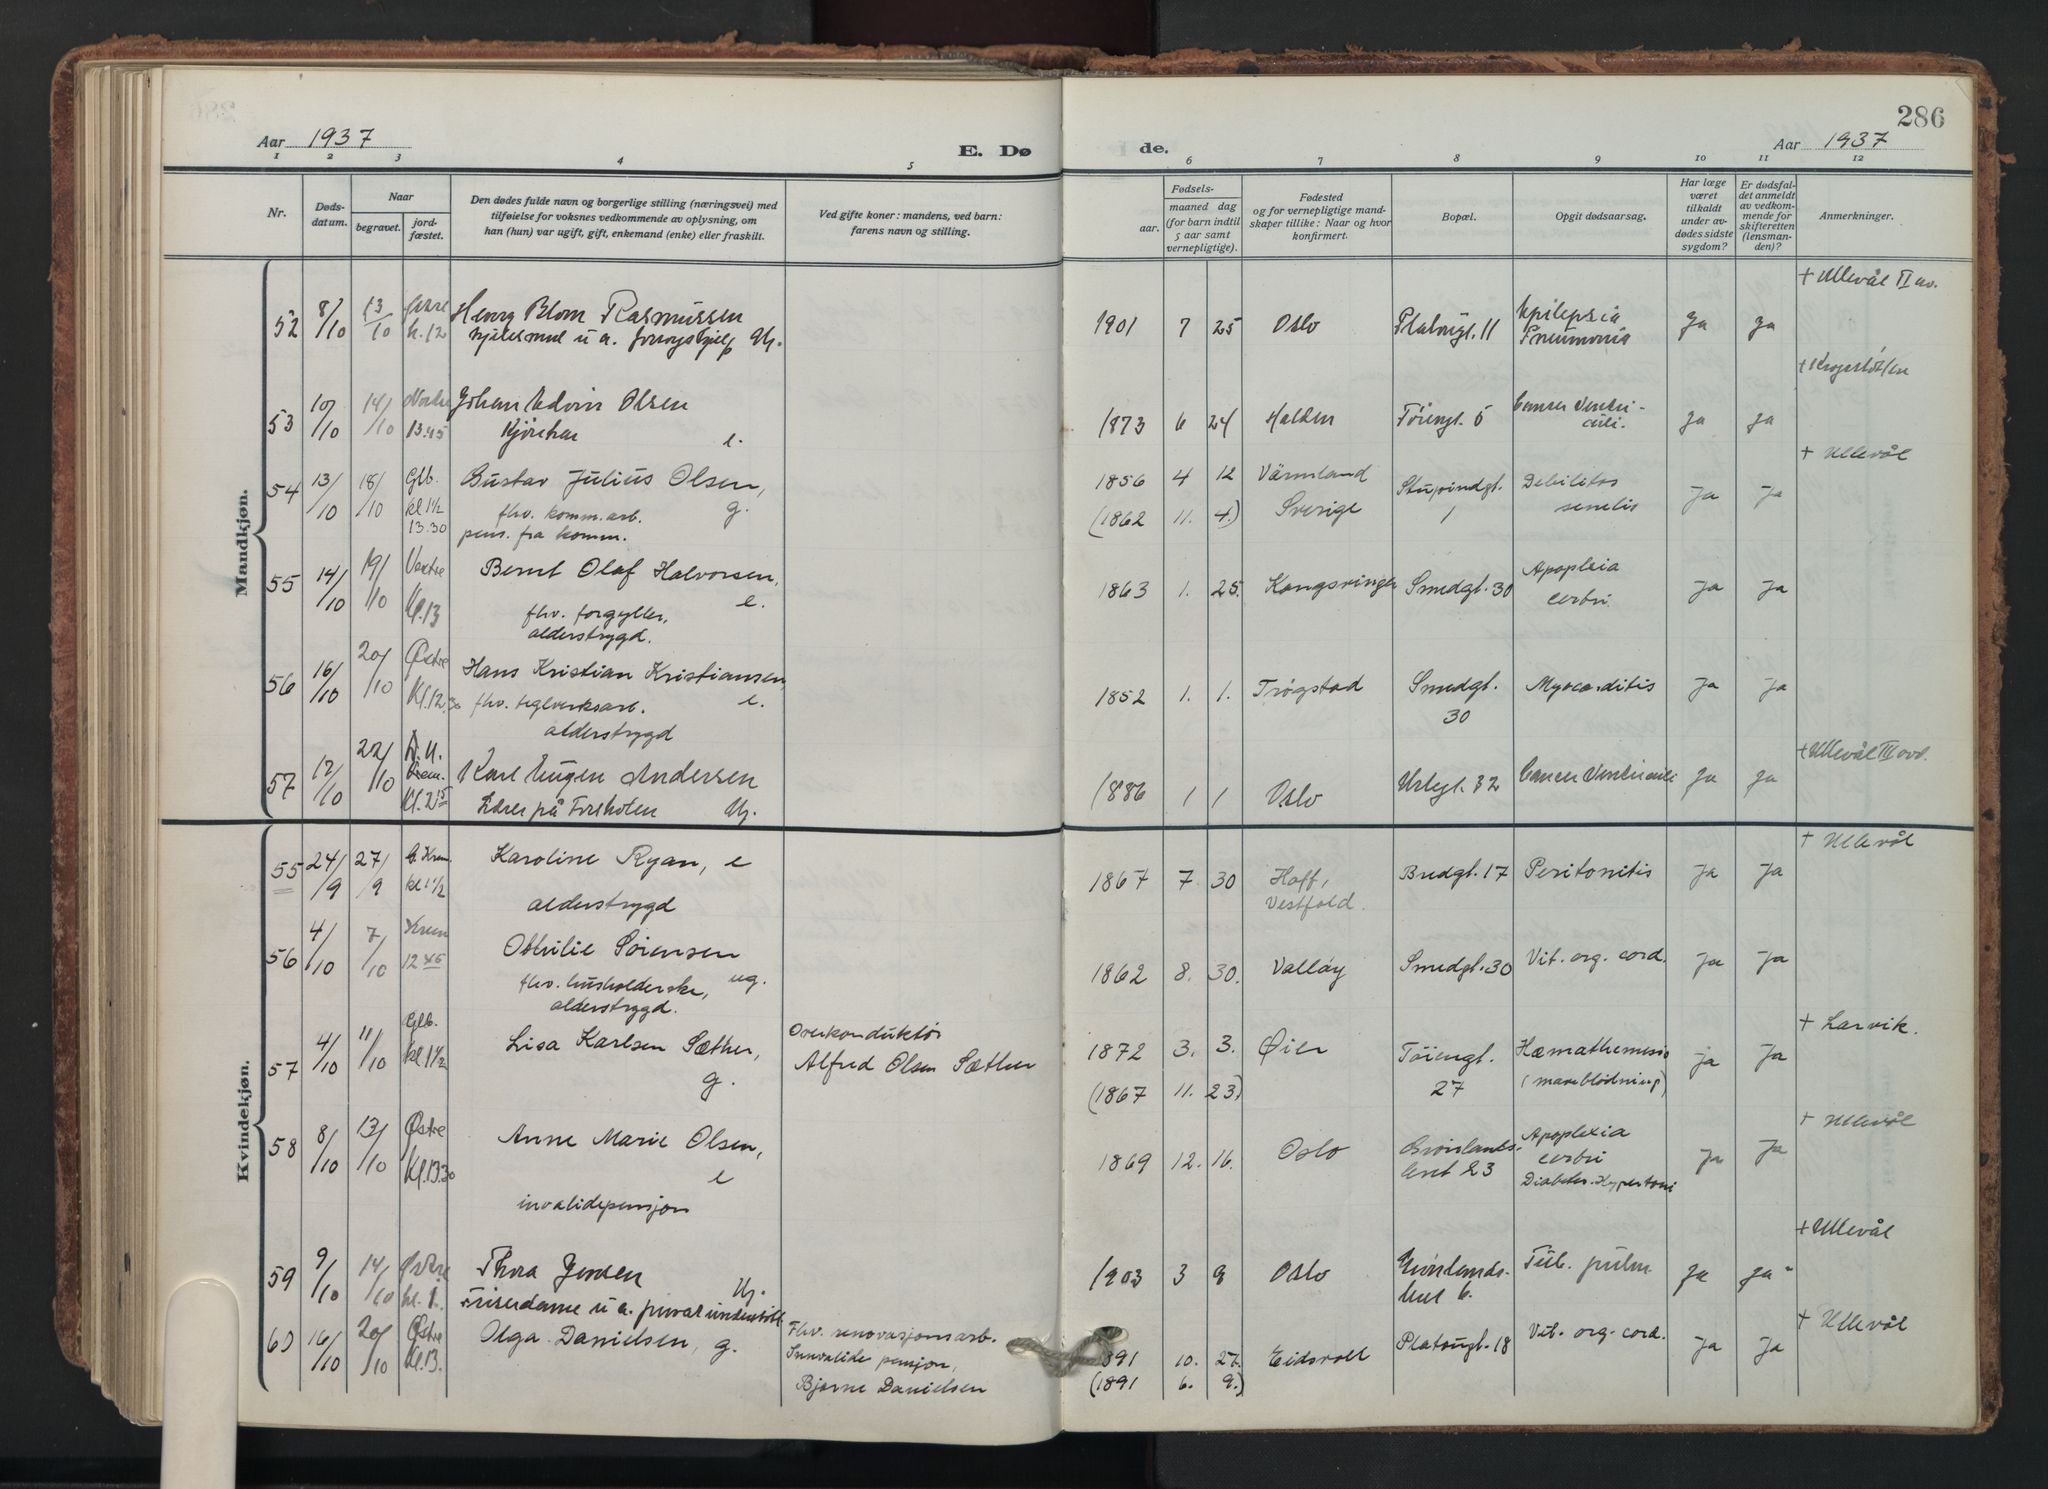 286
Aar 1937
E. Dø
de.
Aar 1937
1 2 3 4 5 6 7 8 9 10 11 12
Nr.
Dødsdatum.
Naar
begravet.
jordfæstet.
Den dødes fulde navn og borgerlige stilling (næringsvei) med
tilføielse for voksnes vedkommende av oplysning, om
han (hun) var ugift, gift, enkemand (enke) eller fraskilt.
Ved gifte koner: mandens, ved barn:
farens navn og stilling.
Fødsels-
aar.
maaned dag
(for barn indtil
5 aar samt
vernepligtige).
Fødested
og for vernepligtige mand-
skaper tillike: Naar og hvor
konfirmert.
Bopæl.
Opgit dødsaarsag.
Har læge
været
tilkaldt
under av-
dødes sidste
sygdom?
Er dødsfal-
det anmeldt
av vedkom-
mende for
skifteretten
(lensman-
den)?
Anmerkninger.
Mandkjøn.
52 8/10 13/10 kl. 12 Georg Blom Rasmussen
Ug.
1901 7 25 Oslo Platougt. 11 Epilepsia
Pneumonia Ja Ja + Ullevål II av.
53 10/10 14/10 Nordre 13.45 Johan Edvin Olsen
Kjørekar e.
1873 6 24 Halden Tøiengt. 5 Cancer Ventri-
culi. Ja Ja
54 13/10 18/10 Glb. kl 1 1/2 13.30 Gustav Julius Olsen,
fhv. komm. arb. g.
pens. fra komm.
1856 4 12 Värmland
(1862 11. 4.) Sverige
Stupindgt. 1 Debilitas
senilis Ja Ja + Ullevål
55 14/10 19/10 Vestre Kl. 13 Bernt Olaf Halvorsen,
e.
fhv. forgyller,
alderstrygd.
1863 1. 25. Kongsvinger Smedgt. 30 Apoplexia
cerbri Ja Ja
56 16/10 20/10 Østre Kl. 12.30 Hans Kristian Kristiansen,
fhv. teglverksarb. e.
alderstrygd
1852 1. 1. Trøgstad Smedgt.
30 Myocarditis Ja Ja
57 17/10 22/10 Krem. Kl. 2 15 Karl Eugen Andersen
Ug.
1886 1 1 Oslo Urtegt. 32 Cancer Ventriculi Ja Ja + Ullevål III avd.
Kvindekjøn.
55 24/9 27/9 G. Krem. kl 1 1/2 Karoline Ryan, e
alderstrygd
1867 7 30 Hoff,
Vestfold. Bredgt. 17 Peritonitis Ja Ja + Ullevål
56 4/10 7/10 Krem 12 45 Othilie Sørensen
fhv. husholderske, ug.
alderstrygd.
1862 8. 30. Valløy Smedgt. 30 Vit. org. cord. Ja Ja
57 4/10 11/10 Glb. kl 1 1/2 Lisa Karlsen Sæther,
g.
Overkonduktør
Alfred Olsen Sæther
1872 3. 3. Øier
(1867 11. 23.)
Tøiengt.
27 Hæmathemesis
(maveblødning) Ja Ja + Larvik.
58 8/10 13/10 Østre Kl. 13.30 Anne Marie Olsen,
e
invalidepensjon
1869 12. 16. Oslo Grønlands-
leret 23 Apoplexia
cerbri
Diabetes. Hypertoni Ja Ja + Ullevål
59 9/10 14/10 Østre kl. 1. Thora Jensen
Ug.
Friserdame u a.
1903 3 9 Oslo Grønlands-
leret 6. Tub. pulm Ja Ja + Ullevål
60 16/10 20/10 Østre Kl. 13. Olga Danielsen, g.
Fhv. renovasjonsarb.
Innvalide pensjon,
Bjarne Danielsen
1891 10. 27. Eidsvoll
(1891 6. 9.)
Platougt. 18 Vit. org. cord. Ja Ja + Ullevål